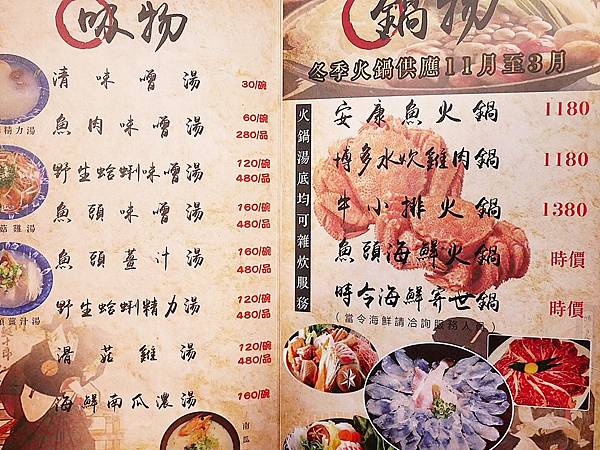 吸物
清味噌湯 30/碗
魚肉味噌湯 60/碗 280/品
野生蛤蜊味噌湯 120/碗 480/品
魚頭味噌湯 160/碗 480/品
魚頭薑汁湯 160/碗 480/品
野生蛤蜊精力湯 120/碗 480/品
滑菇雞湯 120/碗 480/品
海鮮南瓜濃湯 160/碗
精力湯
菇雞湯
頭薑汁湯
南瓜
鍋物
冬季火鍋供應11月至3月
火鍋湯底均可雜炊服務
安康魚火鍋 1180
博多水炊雞肉鍋 1180
牛小排火鍋 1380
魚頭海鮮火鍋 時價
時令海鮮寄世鍋 時價
(當令海鮮請洽詢服務人員)